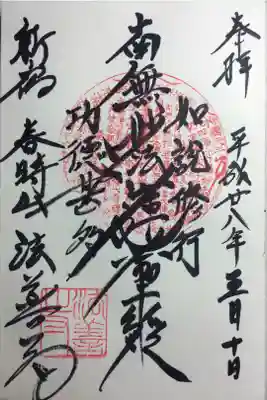 奉拝
平成廿八年五月十日
如説修行
南無妙法蓮華経
功徳甚多
新宿
春時山 法善寺